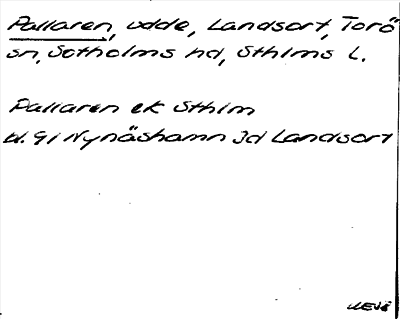 Pallaren, udde, Landsort, Torö
sn, Sotholms hd, Sthlms L.
Pallaren ek Sthlm
bl. 9I Nynäshamn Jd Landsort